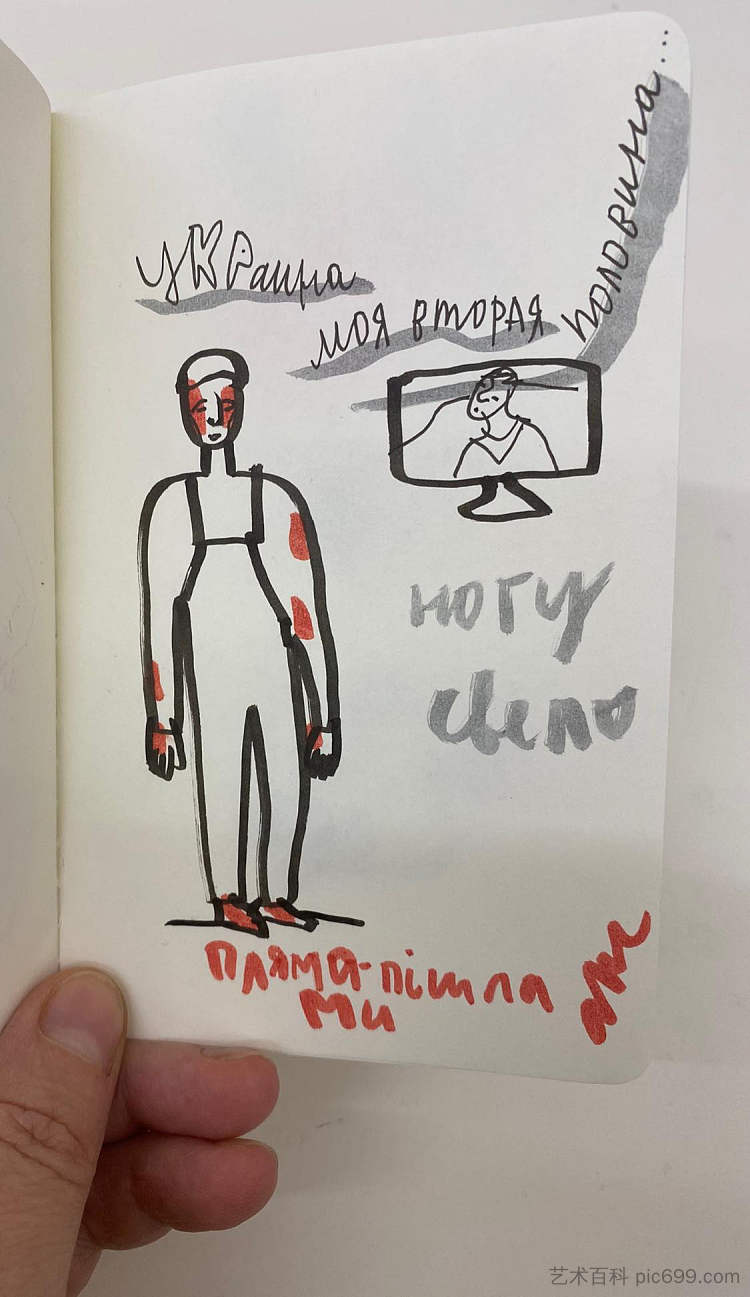 украина
моя вторая половина...
ногу
свело
пляма-пішла
ми
艺术百科 pic699.com